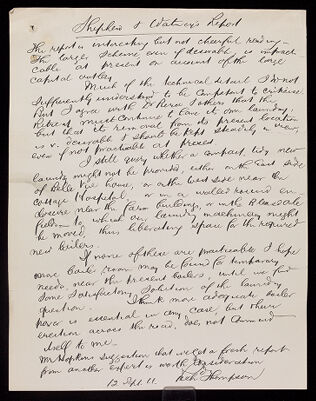 Shepherd & Watney's Report
The report is interesting but not cheerful reading.
The larger scheme even if desirable, is impracti-
cable at present on account of the large
capital outlay.
Much of the technical detail I do not
sufficiently understand to be competent to criticise
But I agree with Dr Pierce & others that the
Retreat must continue to have its own laundry,
but that its removal from its present location
is v. desirable & should be kept steadily in view,
even if not practicable at present
I still query whether a compact, tidy new
laundry might not be provided, either on the East side
of Belle Vue house, or on the west side near the
Cottage Hospital, or in a walled round en-
closure near the farm buildings, or in the
field to which our laundry machinery might
be moved, thus liberating space for the required
new boilers.
If none of these are practicable I hope
more boiler room may be found for temporary
needs, near the present boilers, until we find
some satisfactory solution of the laundry
question. I think more adequate boiler
power is essential in any case, but their
erection across the road does not commend
itself to me.
Mr Hopkins suggestion that we get a fresh report
from another expert is worth consideration
12 Sept. 11. Thompson